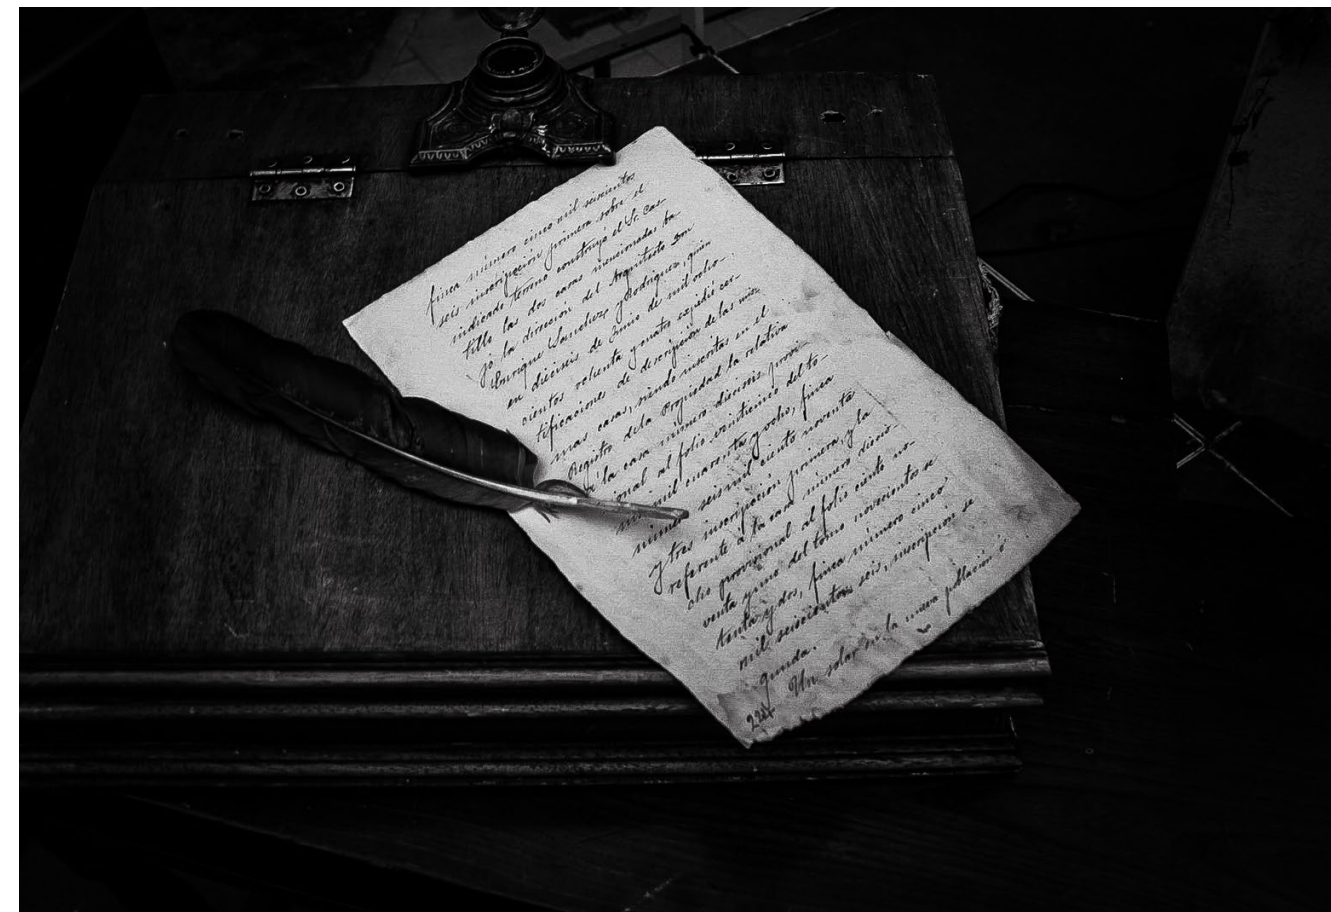 finca número cinco mil seiscientos
seis inscripción primera sobre el
indicado terreno construyó el Sr. Cas-
tillo las dos casas mencionadas ba
jo la dirección del Arquitecto Don
Enrique Sanchez y Rodriguez, quien
en dieciseis de Junio de mil ocho-
cientos ochenta y cuatro expidió cer-
tificaciones de descripción de las mis
mas casas, siendo inscritas en el
Registro de la Propiedad la relativa
á la casa número dieciseis provi-
sional al folio veinticinco del to-
mo mil cuarenta y ocho, finca
número seis mil ciento noventa
y tres inscripción primera, y la
referente á la casa número dieci-
ocho provisional al folio ciento no-
venta y uno del tomo novecientos se
tenta y dos, finca número cinco
mil seiscientos seis, inscripción se
gunda.
Un solar en la nueva población ó